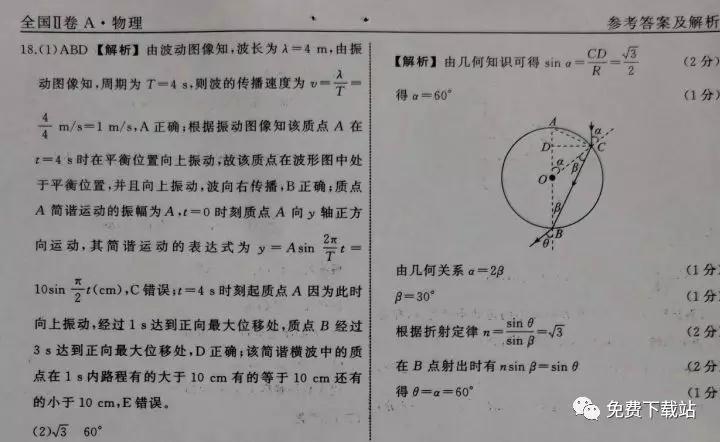 全国Ⅱ卷 A·物理
参考答案及解析
18.(1)ABD 【解析】由波动图像知,波长为 λ=4 m,由振
动图像知,周期为 T=4 s,则波的传播速度为 v=λ/T=
4/4 m/s=1 m/s,A 正确;根据振动图像知该质点 A 在
t=4 s时在平衡位置向上振动,故该质点在波形图中处
于平衡位置,并且向上振动,波向右传播,B正确;质点
A 简谐运动的振幅为A,t=0 时刻质点 A 向 y 轴正方
向运动,其简谐运动的表达式为 y=Asin 2π/T t=
10sin π/2 t(cm),C错误;t=4 s时刻起质点 A 因为此时
向上振动,经过 1 s达到正向最大位移处,质点 B 经过
3 s达到正向最大位移处,D正确;该简谐横波中的质
点在 1 s内路程有的大于 10 cm 有的等于 10 cm 还有
的小于 10 cm,E错误。
(2)√3 60°
【解析】由几何知识可得 sin α=CD/R=√3/2 (2分)
得 α=60° (1分)
A
α
D
C
α
β
O
β
B
θ
由几何关系 α=2β (1分)
β=30° (1分)
根据折射定律 n=sin θ/sin β=√3 (2分)
在 B 点射出时有 nsin β=sin θ (2分)
得 θ=α=60° (1分)
免费下载站